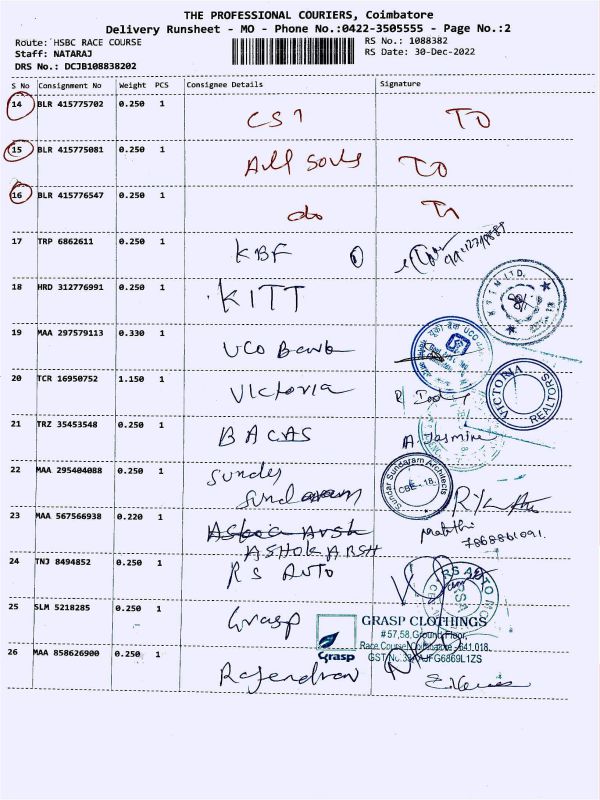 THE PROFESSIONAL COURIERS, Coimbatore
Delivery Runsheet - MO - Phone No.:0422-3505555 - Page No.:2
Route: HSBC RACE COURSE RS No.: 1088382
Staff: NATARAJ RS Date: 30-Dec-2022
DRS No.: DCJB108838202
S No Consignment No Weight PCS Consignee Details Signature
14 BLR 415775702 0.250 1 CSI TO
15 BLR 415775081 0.250 1 All Souls TO
16 BLR 415776547 0.250 1 do
17 TRP 6862611 0.250 1 KBF
18 HRD 312776991 0.250 1 KITT
19 MAA 297579113 0.330 1 UCO Bank
20 TCR 16950752 1.150 1 Victoria
VICTORIA REALTORS
21 TRZ 35453548 0.250 1 BACAS A Jasmine
22 MAA 295404088 0.250 1 Sunder
Sundaram
Sundar Sundaram Architects
CBE - 18.
23 MAA 567566938 0.220 1
ASHOK ARSH 7868861091.
24 TNJ 8494852 0.250 1 RS AUTO
RS AUTO
RSA
25 SLM 5218285 0.250 1 Grasp
Grasp
GRASP CLOTHINGS
#57,58, Ground Floor,
Race Course, Coimbatore - 641 018.
26 MAA 858626900 0.250 1 Rajendran